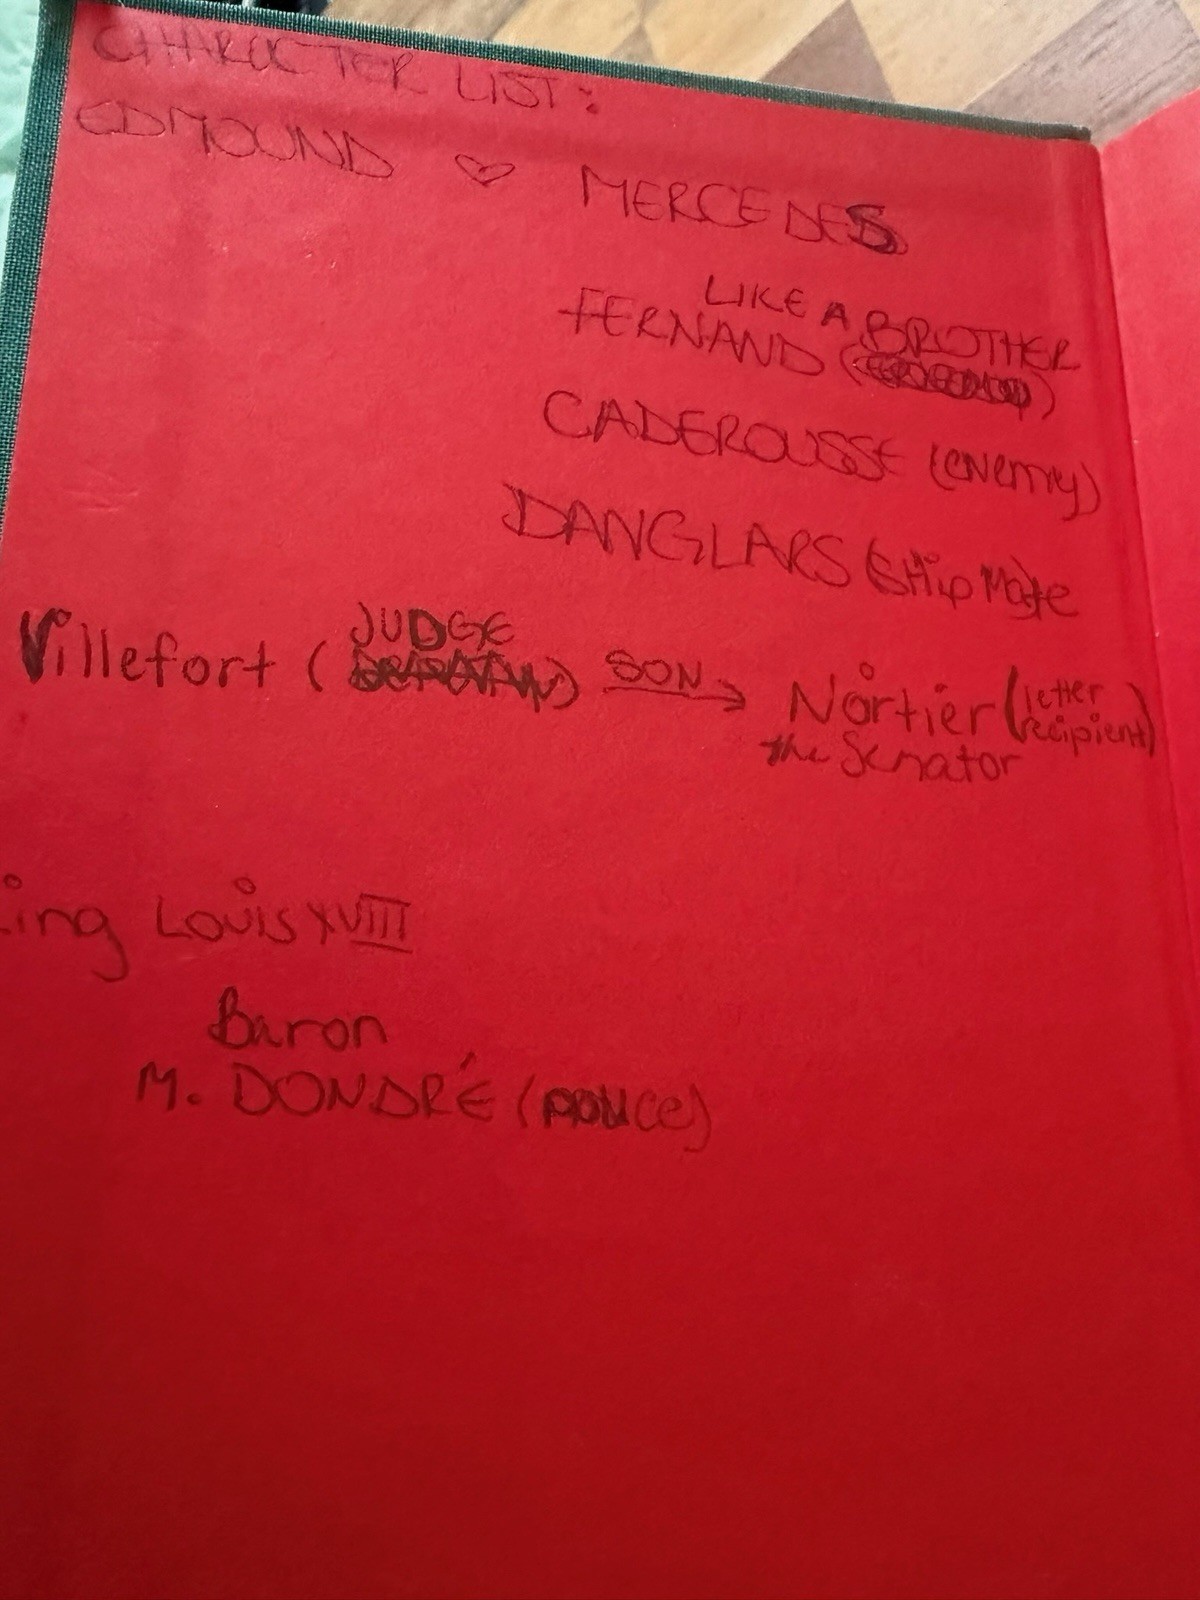 CHARACTER LIST:
EDMOUND ♡ MERCEDES
LIKE A BROTHER
FERNAND ( )
CADEROUSSE (enemy)
DANGLARS (SHip Mate
JUDGE
Villefort ( ) SON → Nortier (letter recipient)
the Senator
ing Louis XVIII
Baron
M. DONDRÉ (POLICE)